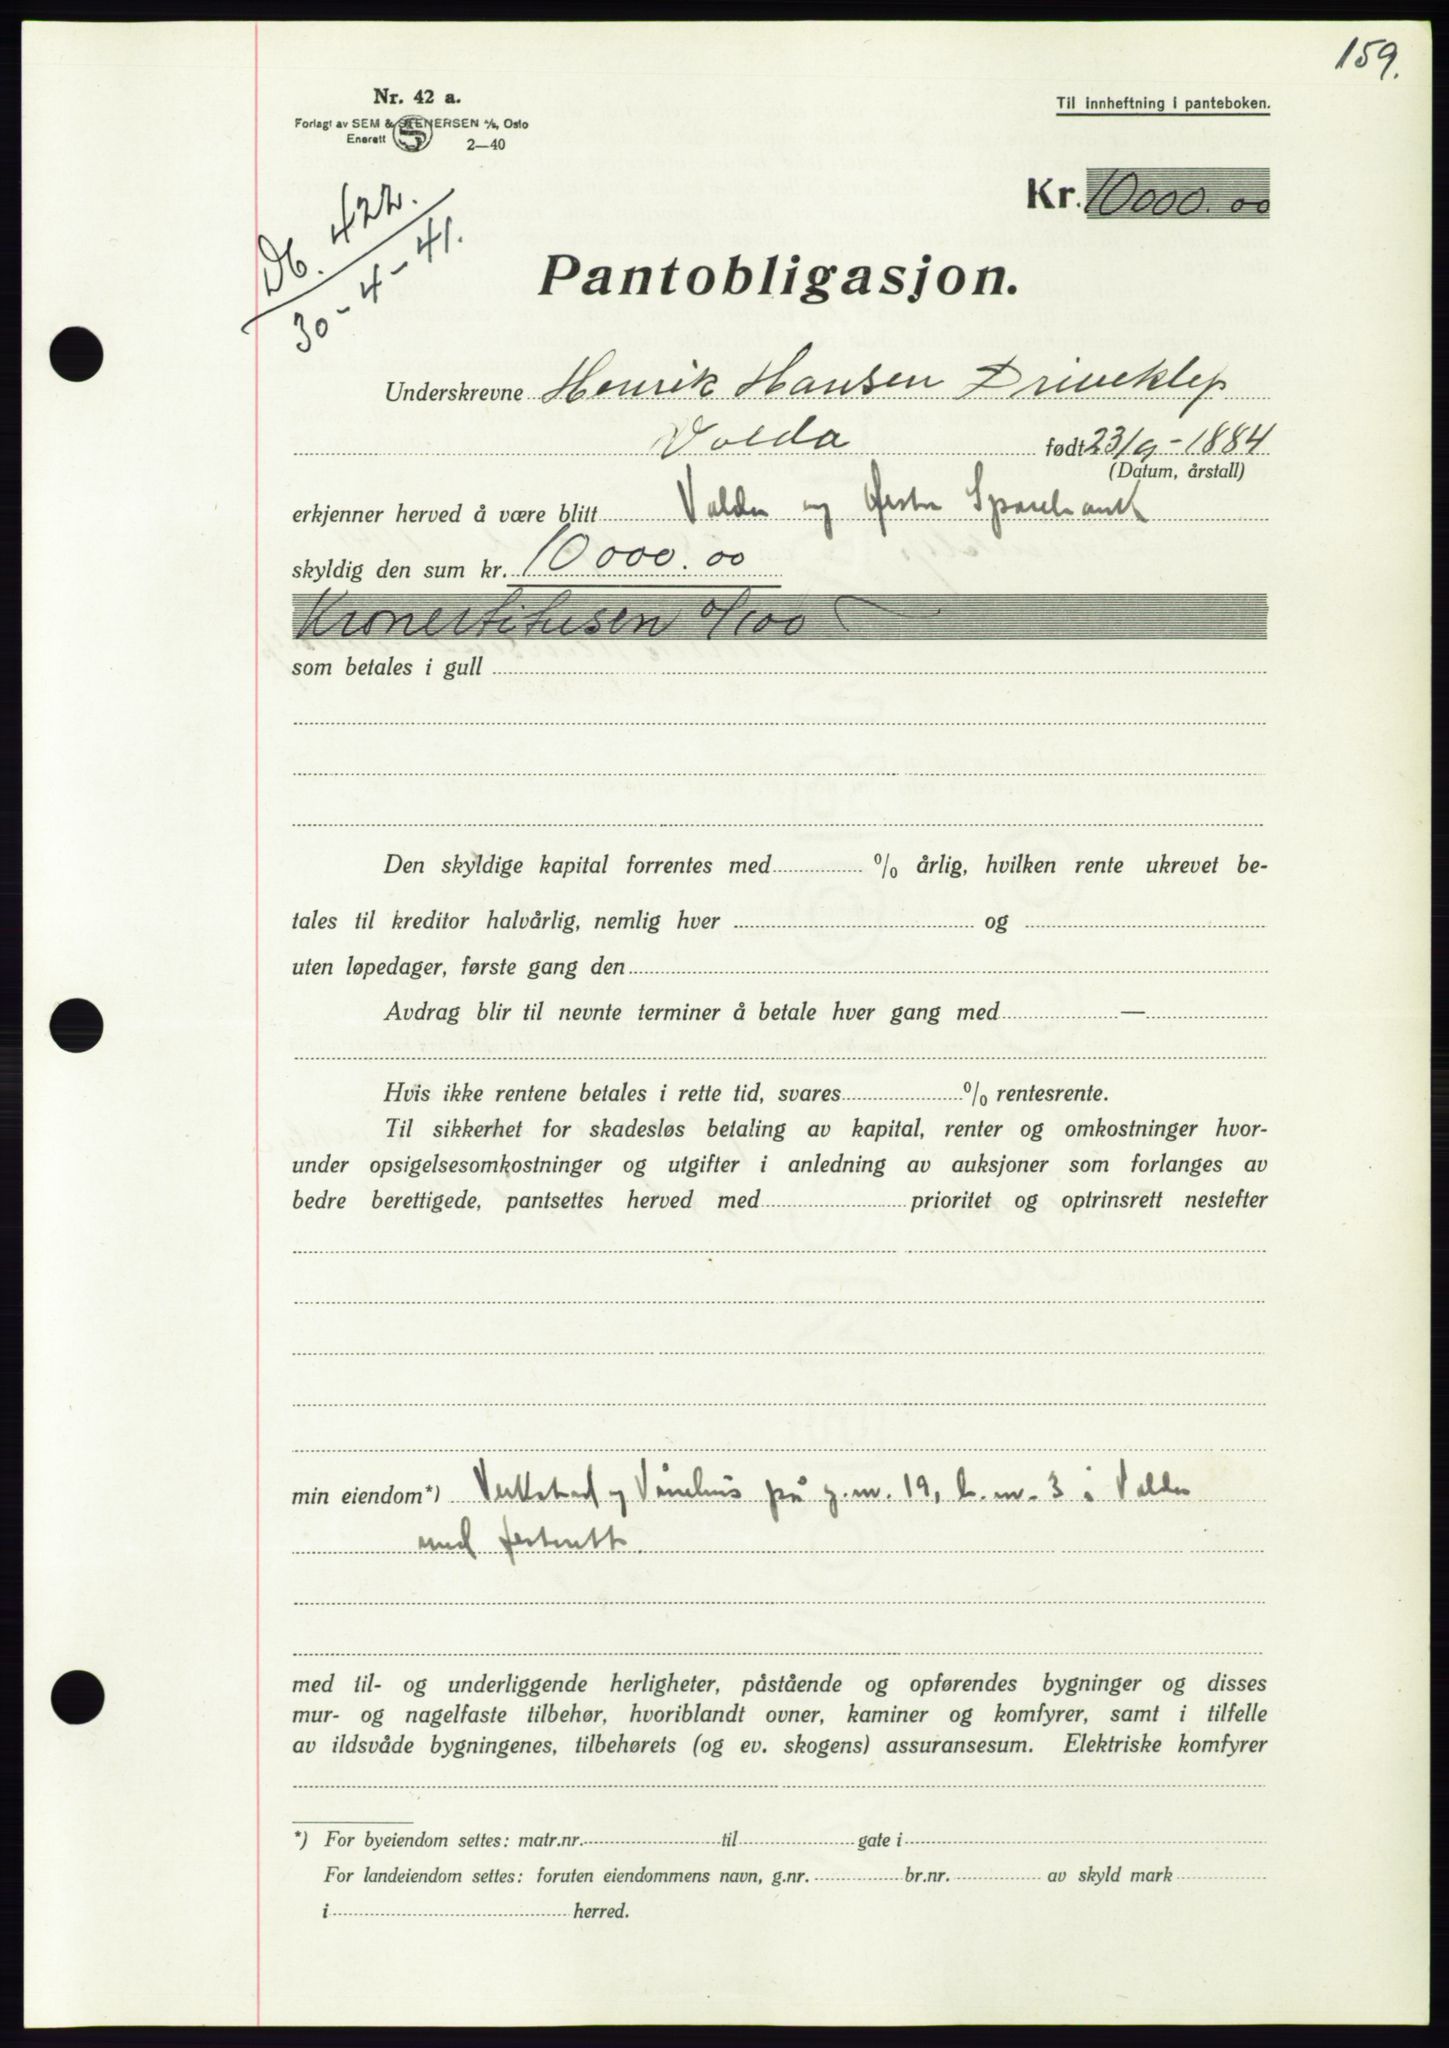 159.
Nr. 42 a.
Forlagt av SEM & STENERSEN A/S, Oslo
Enerett 2—40
Til innheftning i panteboken.
Db. 422.
30-4-41.
Kr. 10000.00
Pantobligasjon.
Underskrevne Henrik Hansen Driveklep
Volda født 23/9-1884
(Datum, årstall)
erkjenner herved å være blitt Volda og Ørsta Sparebank
skyldig den sum kr. 10000.00
Kronertitusen 0/100
som betales i gull
Den skyldige kapital forrentes med % årlig, hvilken rente ukrevet be-
tales til kreditor halvårlig, nemlig hver og
uten løpedager, første gang den
Avdrag blir til nevnte terminer å betale hver gang med —
Hvis ikke rentene betales i rette tid, svares % rentesrente.
Til sikkerhet for skadesløs betaling av kapital, renter og omkostninger hvor-
under opsigelsesomkostninger og utgifter i anledning av auksjoner som forlanges av
bedre berettigede, pantsettes herved med prioritet og optrinsrett nestefter
min eiendom*) Verkstad og Vånehus på g.nr. 19, b.nr. 3 i Volda
med festerett.
med til- og underliggende herligheter, påstående og opførendes bygninger og disses
mur- og nagelfaste tilbehør, hvoriblandt ovner, kaminer og komfyrer, samt i tilfelle
av ildsvåde bygningenes, tilbehørets (og ev. skogens) assuransesum. Elektriske komfyrer
*) For byeiendom settes: matr.nr. til gate i
For landeiendom settes: foruten eiendommens navn, g.nr. br.nr. av skyld mark
i herred.